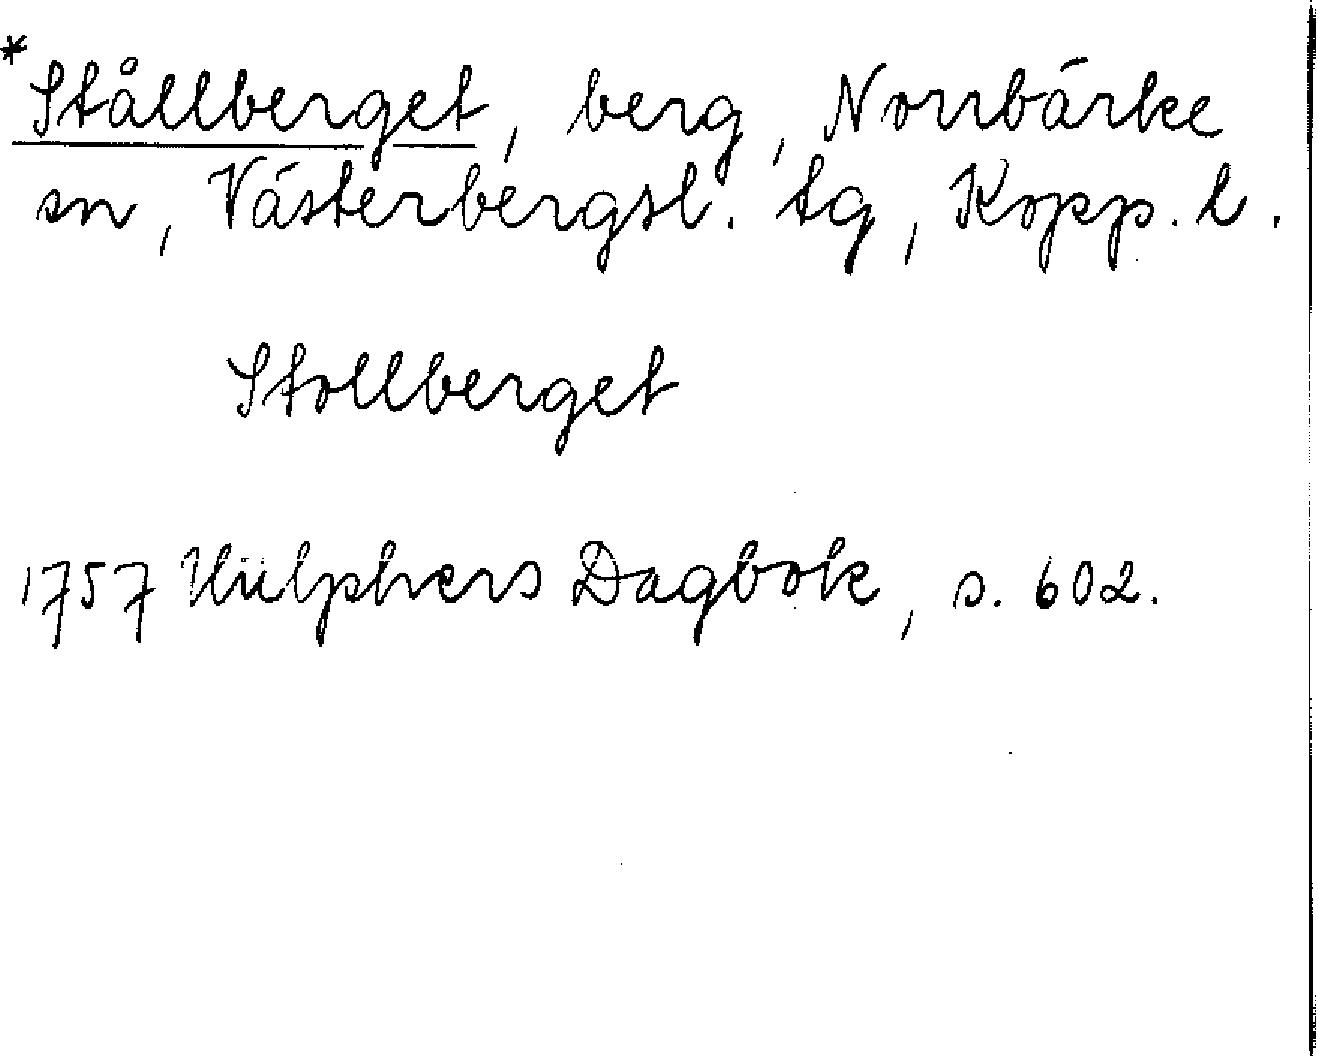 *Stållberget, berg, Norrbärke
sn, Västerbergsl. tg, Kopp. l.
Stollberget
1757 Hülphers Dagbok, s. 602.